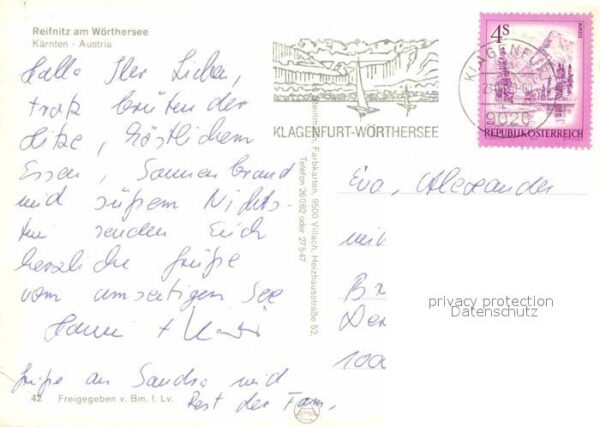 Reifnitz am Wörthersee
Kärnten - Austria
Hallo Ihr Lieben,
trotz brütender
Hitze, köstlichem
Essen, Sonnenbrand
und süßem Nichts-
tun senden Euch
herzliche Grüße
vom umseitigen See
Hanni +
Grüße an Sandra und
Rest der Fam.
42 Freigegeben v. Bm. f. Lv.
Farbkarten, 9500 Villach, Herzhausstraße 52,
Telefon 26062 oder 27547
KLAGENFURT-WÖRTHERSEE
4S
KLAGENFURT
9020
REPUBLIK ÖSTERREICH
Eva, Alexander
privacy protection
Datenschutz